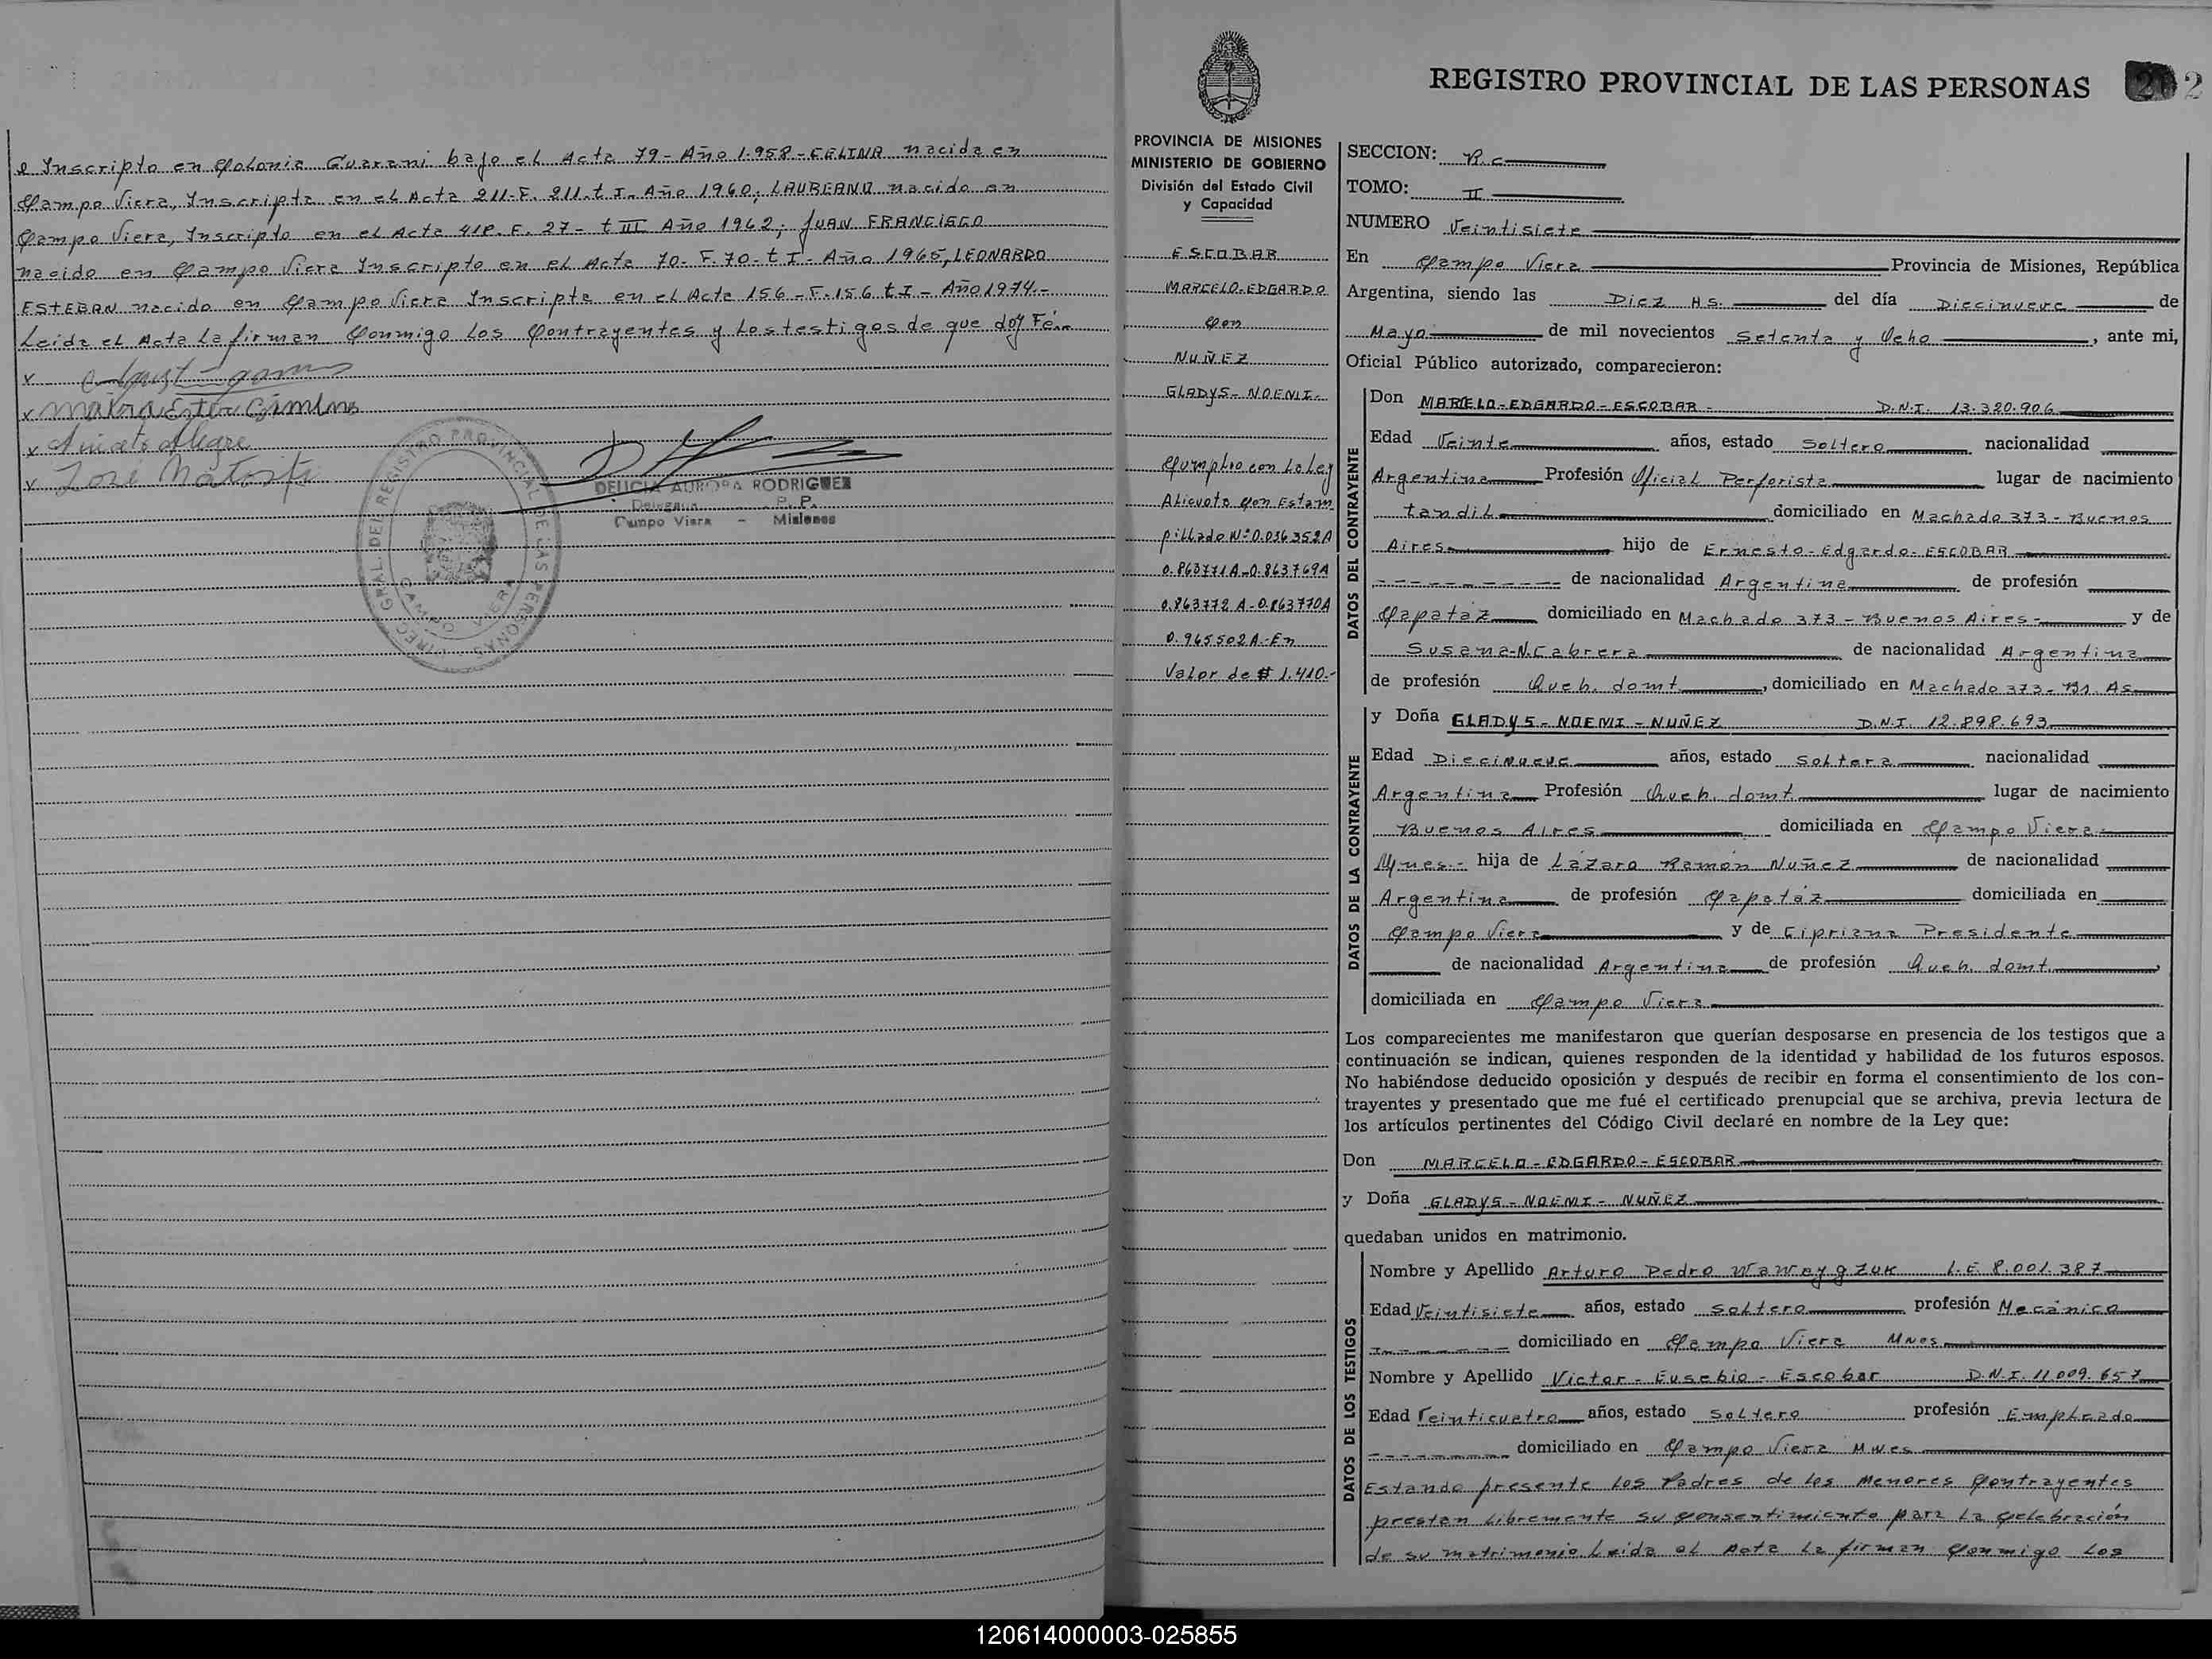 e Inscripto en Colonia Guarani bajo el Acta 79- Año 1.958- CELINA nacida en
Campo Viera, Inscripta en el Acta 211-F. 211. t I- Año 1960; LAUREANO nacido en
Campo Viera, Inscripto en el Acta 418. F. 27- t III Año 1962; JUAN FRANCISCO
nacido en Campo Viera Inscripto en el Acta 70- F. 70- t I- Año 1965, LEONARDO
ESTEBAN nacido en Campo Viera Inscripto en el Acta 156- F. 156 t I- Año 1974.-
Leida el Acta la firman Conmigo los Contrayentes y los testigos de que doy Fé.-
x
x Maria Ester Gimenes
x Aniceto Alegre
x José
DIREC. GRAL. DEL REGISTRO PROVINCIAL DE LAS PERSONAS
CAMPO VIERA
DELICIA AURORA RODRIGUEZ
Delegada R. P. P.
Campo Viera - Misiones
REGISTRO PROVINCIAL DE LAS PERSONAS
2
PROVINCIA DE MISIONES
MINISTERIO DE GOBIERNO
División del Estado Civil
y Capacidad
ESCOBAR
MARCELO-EDGARDO
Con
NUÑEZ
GLADYS- NOEMI-
Cumplio con la Ley
Alicuota Con Estam
pillado Nº 0.036352A
0.863771A-0.863769A
0.863772A-0.863770A
0.965502A.-En
Valor de $ 1.410.-
SECCION: R.c
TOMO: II
NUMERO Veintisiete
En Campo Viera Provincia de Misiones, República
Argentina, siendo las Diez Hs. del día Diecinueve de
Mayo de mil novecientos Setenta y Ocho, ante mi,
Oficial Público autorizado, comparecieron:
DATOS DEL CONTRAYENTE
Don MARCELO-EDGARDO-ESCOBAR- D.N.I. 13.320.906
Edad Veinte años, estado Soltero nacionalidad
Argentina Profesión Oficial Perforista lugar de nacimiento
tandil domiciliado en Machado 373- Buenos
Aires hijo de Ernesto-Edgardo-ESCOBAR
de nacionalidad Argentina de profesión
Capataz domiciliado en Machado 373- Buenos Aires- y de
Susana-N.Cabrera de nacionalidad Argentina
de profesión Queh. domt., domiciliado en Machado 373- Bs. As
DATOS DE LA CONTRAYENTE
y Doña GLADYS- NOEMI- NUÑEZ D.N.I. 12.898.693
Edad Diecinueve años, estado Soltera nacionalidad
Argentina Profesión Queh. domt. lugar de nacimiento
Buenos Aires domiciliada en Campo Viera-
Mnes.- hija de Lázaro Ramón Nuñez de nacionalidad
Argentina de profesión Capatáz domiciliada en
Campo Viera y de Cipriana Presidente
de nacionalidad Argentina de profesión Queh. domt.,
domiciliada en Campo Viera
Los comparecientes me manifestaron que querían desposarse en presencia de los testigos que a
continuación se indican, quienes responden de la identidad y habilidad de los futuros esposos.
No habiéndose deducido oposición y después de recibir en forma el consentimiento de los con-
trayentes y presentado que me fué el certificado prenupcial que se archiva, previa lectura de
los artículos pertinentes del Código Civil declaré en nombre de la Ley que:
Don MARCELO-EDGARDO-ESCOBAR
y Doña GLADYS-NOEMI- NUÑEZ
quedaban unidos en matrimonio.
DATOS DE LOS TESTIGOS
Nombre y Apellido Arturo Pedro L.E 8.001.387
Edad Veintisiete años, estado Soltero profesión Mecánico
domiciliado en Campo Viera Mnes
Nombre y Apellido Victor- Eusebio- Escobar D.N.I. 11.009.657
Edad Veinticuatro años, estado Soltero profesión Empleado
domiciliado en Campo Viera Mnes
Estando presente los Padres de los Menores Contrayentes
prestan Libremente su Consentimiento para la Celebración
de su matrimonio. Leida el Acta la firman Conmigo los
120614000003-025855